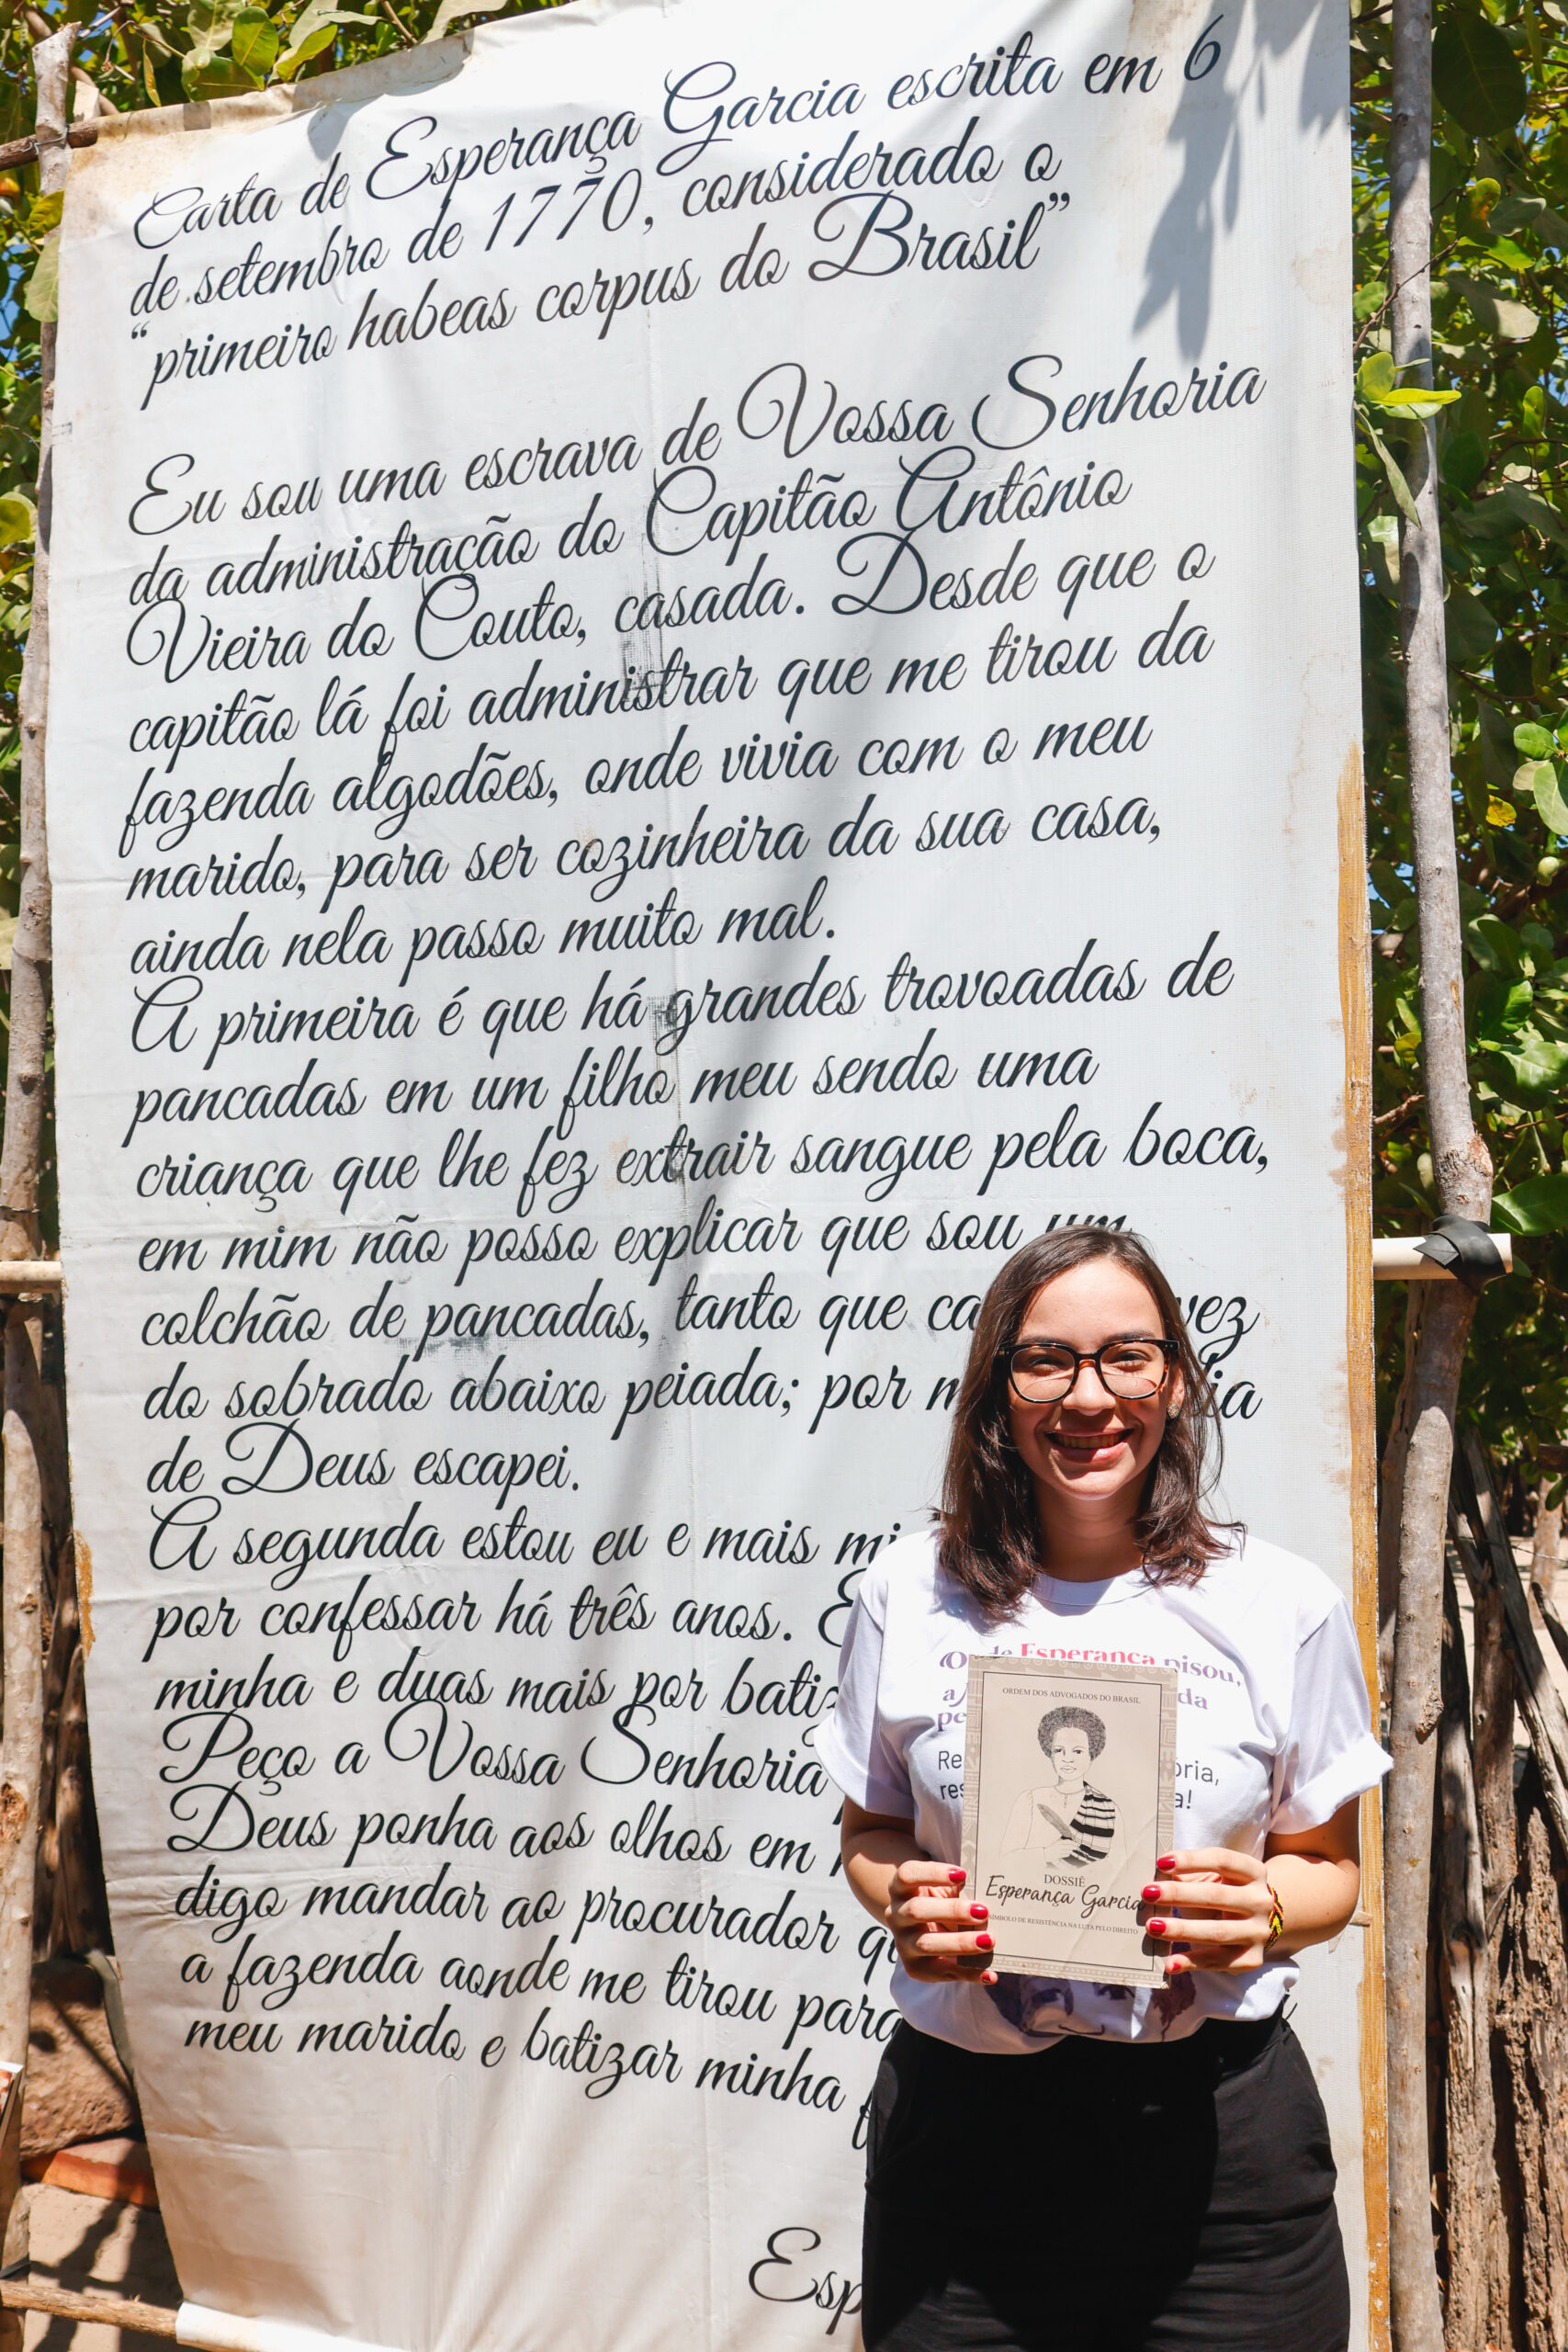 Carta de Esperança Garcia escrita em 6
de setembro de 1770, considerado o
“primeiro habeas corpus do Brasil”
Eu sou uma escrava de Vossa Senhoria
da administração do Capitão Antônio
Vieira do Couto, casada. Desde que o
capitão lá foi administrar que me tirou da
fazenda algodões, onde vivia com o meu
marido, para ser cozinheira da sua casa,
ainda nela passo muito mal.
A primeira é que há grandes trovoadas de
pancadas em um filho meu sendo uma
criança que lhe fez extrair sangue pela boca,
em mim não posso explicar que sou um
colchão de pancadas, tanto que vez
do sobrado abaixo peiada; por
de Deus escapei.
A segunda estou eu e mais
por confessar há três anos.
minha e duas mais por
Peço a Vossa Senhoria
Deus ponha aos olhos em
digo mandar ao procurador
a fazenda aonde me tirou para
meu marido e batizar minha
Esperança pisou,
ORDEM DOS ADVOGADOS DO BRASIL
DOSSIÊ
Esperança Garcia
SÍMBOLO DE RESISTÊNCIA NA LUTA PELO DIREITO